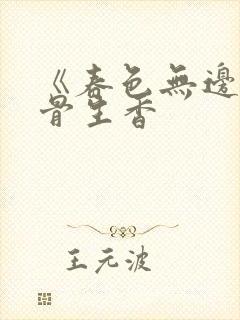 《春色無邊
骨生香
王元波